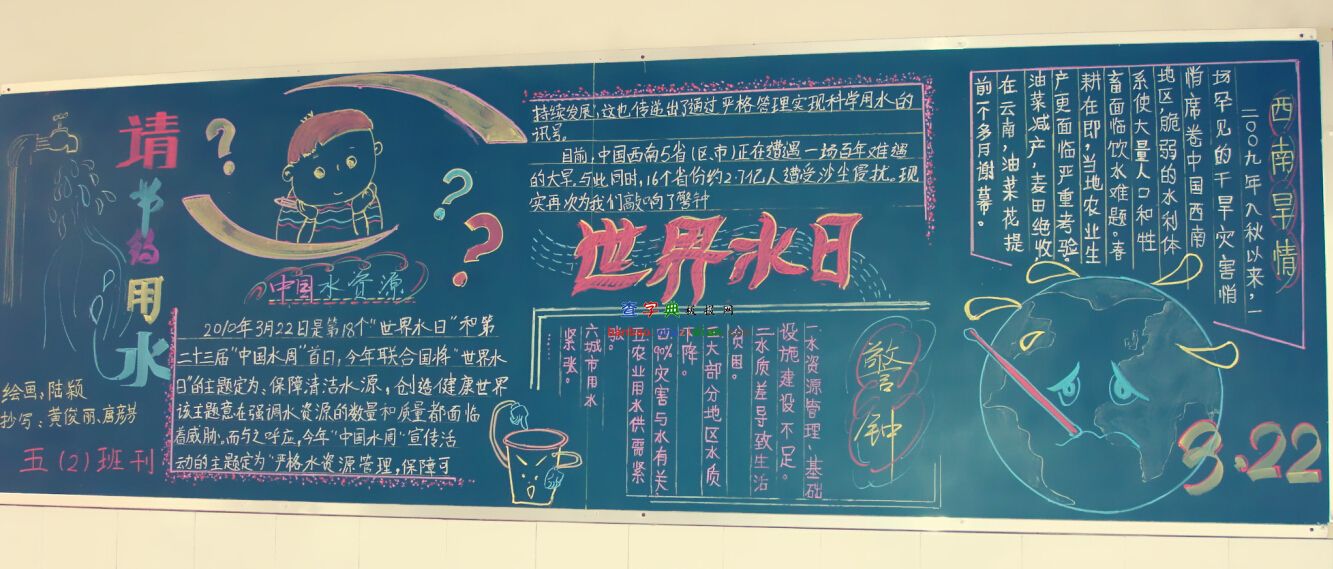 请
节
约
用
水
绘画、陆颖
抄写:黄俊丽、唐彦
五(2)班刊
中国水资源
2010年3月22日是第18个“世界水日”和第
二十三届“中国水周”首日,今年联合国将“世界水
日”的主题定为、保障清洁水源,创造健康世界
该主题意在强调水资源的数量和质量都面临
着威胁。而与之呼应,今年“中国水周”宣传活
动的主题定为“严格水资源管理,保障可
持续发展,这也传递出了通过严格管理实现科学用水的
讯号。
目前,中国西南5省(区、市)正在遭遇一场百年难遇
的大旱。与此同时,16个省份约2.7亿人遭受沙尘侵扰。现
实再次为我们敲响了警钟
世界水日
查字典
警钟
一水资源管理、基础
设施建设不足。
二水质差导致生活
贫困。
三大部分地区水质
下降。
四90%灾害与水有关
五农业用水供需紧
张。
六城市用水
紧张。
西南旱情
二〇〇九年入秋以来,一
场罕见的干旱灾害悄
悄席卷中国西南
地区,脆弱的水利体
系使大量人口和牲
畜面临饮水难题。春
耕在即,当地农业生
产更面临严重考验。
油菜减产,麦田绝收
在云南,油菜花提
前一个多月谢幕。
3.22